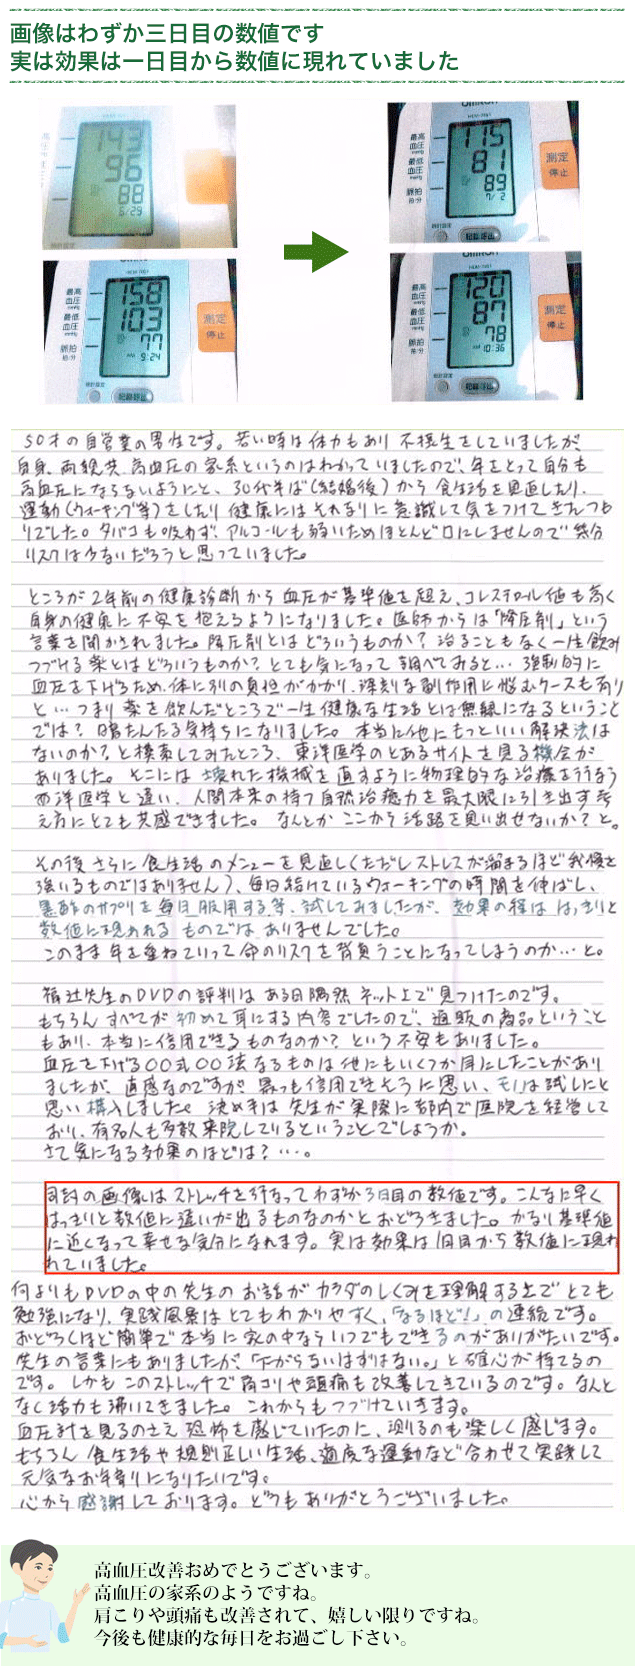 画像はわずか三日目の数値です
実は効果は一日目から数値に現れていました
143
96
88
6/29
158
103
77
9:24
115
81
89
7/2
120
87
78
10:36
最高
血圧
最低
血圧
脈拍
拍/分
測定
停止
記録呼出
50才の自営業の男性です。若い時は体力もあり不摂生をしていましたが、
自身、両親共、高血圧の家系というのはわかっていましたので、年をとって自分も
高血圧にならないようにと、30代半ば(結婚後)から食生活を見直したり、
運動(ウォーキング等)をしたり健康にはそれなりに意識して気をつけてきたつも
りでした。タバコも吸わず、アルコールも弱いためほとんど口にしませんので幾分
リスクは少ないだろうと思っていました。
ところが2年前の健康診断から血圧が基準値を超え、コレステロール値も高く
自身の健康に不安を抱えるようになりました。医師からは「降圧剤」という
言葉を聞かされました。降圧剤とはどういうものか?治ることもなく一生飲み
つづける薬とはどういうものか?とても気になって調べてみると…強制的に
血圧を下げるため、体に別の負担がかかり、深刻な副作用に悩むケースも有り
と…つまり薬を飲んだところで一生健康な生活とは無縁になるということ
では?暗たんたる気持ちになりました。本当に他にもっといい解決法は
ないのか?と検索してみたところ、東洋医学のとあるサイトを見る機会が
ありました。そこには壊れた機械を直すように物理的な治療を行なう
西洋医学と違い、人間本来の持つ自然治癒力を最大限に引き出す考
え方にとても共感できました。なんとかここから活路を見い出せないか?と。
その後さらに食生活のメニューを見直し(ただしストレスが溜まるほど我慢を
強いるものではありません)、毎日続けているウォーキングの時間を伸ばし、
黒酢のサプリを毎日服用する等、試してみましたが、効果の程ははっきりと
数値に現われるものではありませんでした。
このまま年を重ねていって命のリスクを背負うことになってしまうのか…と。
福辻先生のDVDの評判はある日偶然ネット上で見つけたのです。
もちろんすべてが初めて耳にする内容でしたので、通販の商品ということ
もあり、本当に信用できるものなのか?という不安もありました。
血圧を下げる〇〇式〇〇法なるものは他にもいくつか耳にしたことがあり
ましたが、直感なのですが、最も信用できそうに思い、モノは試しにと
思い購入しました。決め手は先生が実際に都内で医院を経営して
おり、有名人も多数来院しているということでしょうか。
さて気になる効果のほどは?…。
同封の画像はストレッチを行なってわずか3日目の数値です。こんなに早く
はっきりと数値に違いが出るものなのかとおどろきました。かなり基準値
に近くなって幸せな気分になれます。実は効果は1日目から数値に現わ
れていました。
何よりもDVDの中の先生のお話がカラダのしくみを理解する上でとても
勉強になり、実践風景はとてもわかりやすく、「なるほど!」の連続です。
おどろくほど簡単で本当に家の中ならいつでもできるのがありがたいです。
先生の言葉にもありましたが「下がらないはずはない。」と確心が持てるの
です。しかもこのストレッチで肩コリや頭痛も改善してきているのです。なんと
なく活力も沸いてきました。これからもつづけていきます。
血圧計を見るのさえ恐怖を感じていたのに、測るのも楽しく感じます。
もちろん食生活や規則正しい生活、適度な運動など合わせて実践して
元気なお年寄りになりたいです。
心から感謝しております。どうもありがとうございました。
高血圧改善おめでとうございます。
高血圧の家系のようですね。
肩こりや頭痛も改善されて、嬉しい限りですね。
今後も健康的な毎日をお過ごし下さい。